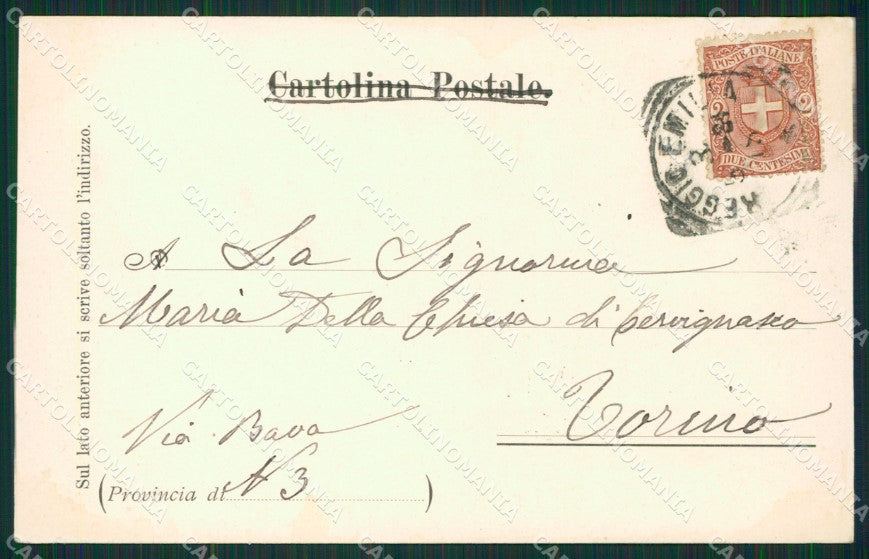 Cartolina Postale.
POSTE ITALIANE
2 2
DUE CENTESIMI
REGGIO EMILIA
Sul lato anteriore si scrive soltanto l'indirizzo.
A La Signorina
Maria Della Chiesa di Cervignasco
Torino
Via Bava
(Provincia di N 3)
CARTOLINOMANIA